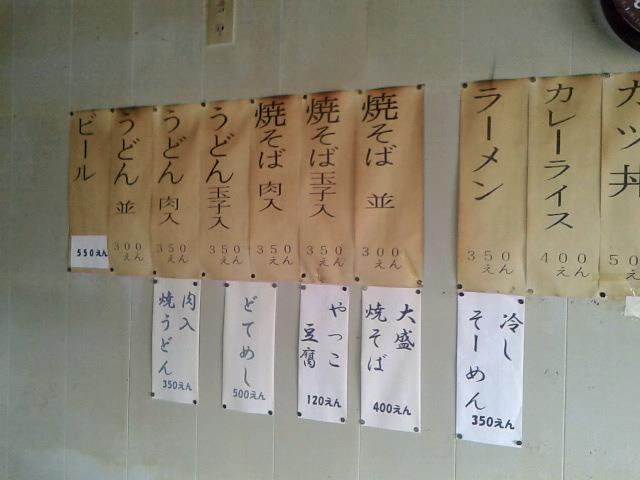 ビール
550えん
うどん 並
300えん
うどん 肉入
350えん
うどん玉子入
350えん
焼そば 肉入
350えん
焼そば玉子入
350えん
焼そば 並
300えん
ラーメン
350えん
カレーライス
400えん
カツ丼
肉入
焼うどん
350えん
どてめし
500えん
やっこ
豆腐
120えん
大盛
焼そば
400えん
冷し
そーめん
350えん